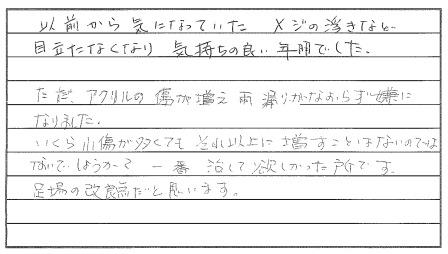 以前から気になっていた メジの浮きなど
目立たなくなり 気持ちの良い 年間でした。
ただ、アクリルの傷が増え 雨漏りが なおらず 嫌に
なりました。
いくら小傷が多くても それ以上に増すことはないのでは
ないでしょうか? 一番 治して欲しかった所です。
足場の改良点だと思います。